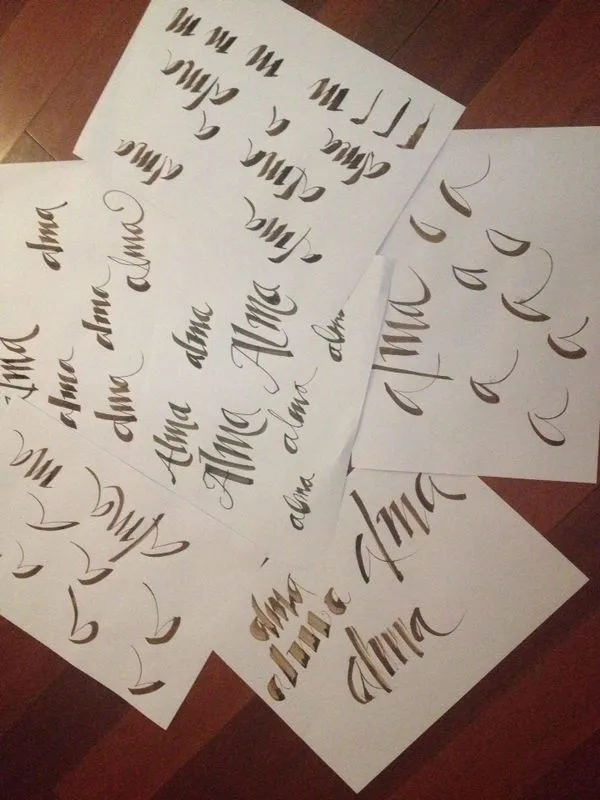 m m m m
alma
a a
alma alma alma
alma
alma alma
alma alma
alma alma alma Alma alma
alma alma alma
Alma Alma alma
alma
a a
a a
alma a a
a a
ma alma
a a
a a
a
alma
alma
alma
alma